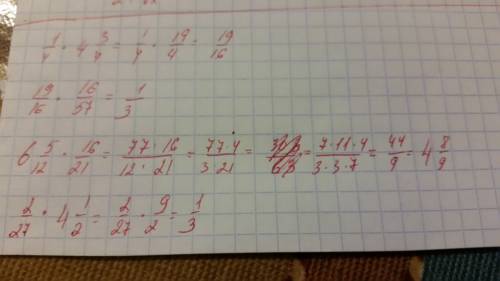 1/4 · 4 3/4 = 1/4 · 19/4 = 19/16
19/16 · 16/57 = 1/3
6 5/12 · 16/21 = 77 · 16/12 · 21 = 77 · 4/3 · 21 = = 7 · 11 · 4/3 · 3 · 7 = 44/9 = 4 8/9
2/27 · 4 1/2 = 2/27 · 9/2 = 1/3